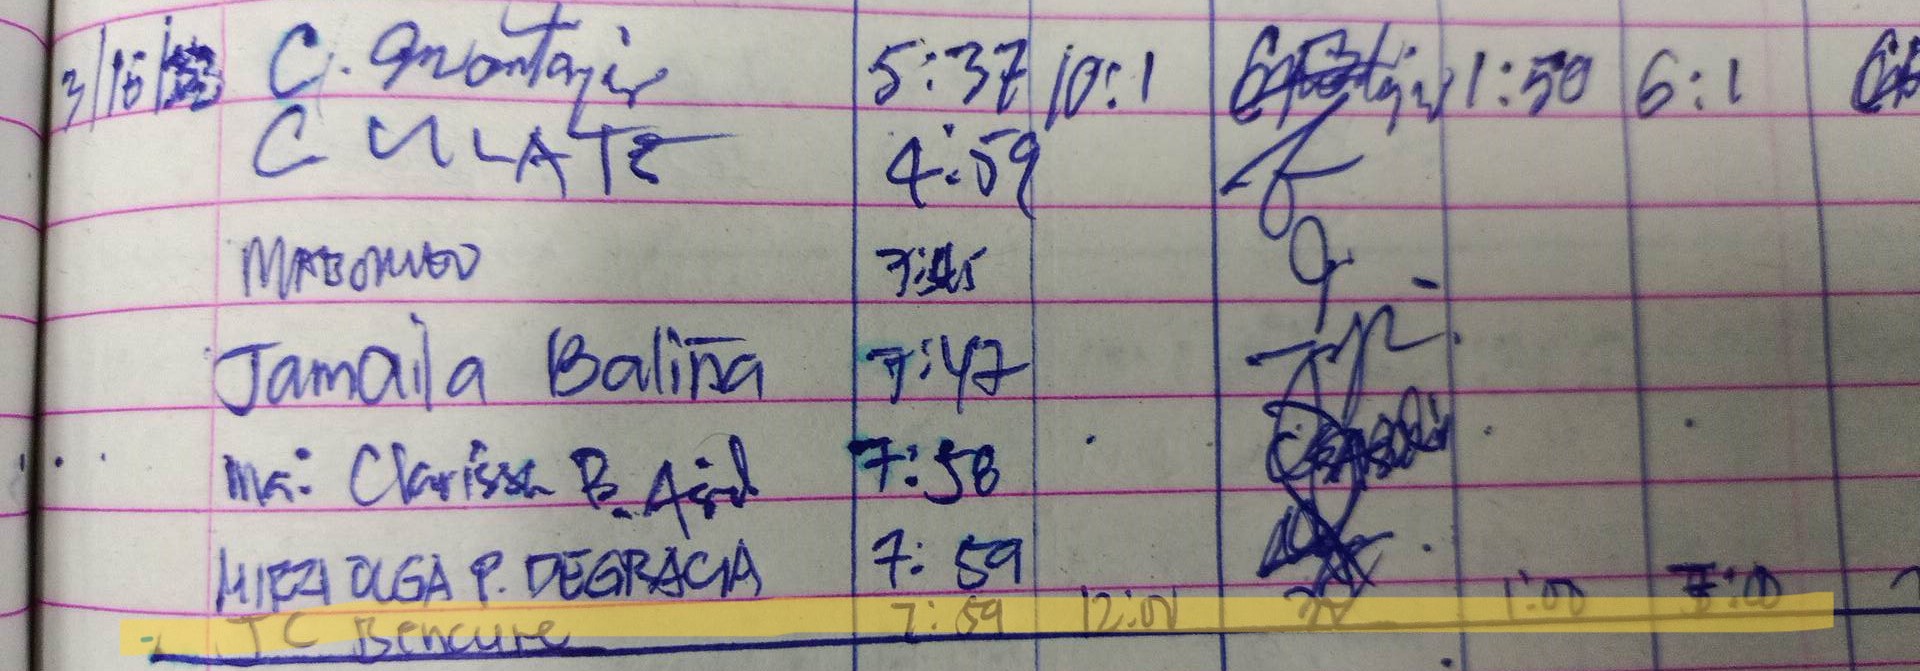 3/15/23 C. Montajes 5:37 10:1 1:50 6:1
C ULATE 4:59
7:45
Jamaila Baliña 7:47
Ma. Clarissa B. Asid 7:58
MIRZI OLGA P. DEGRACIA 7:59
JC Bencure 7:59 12:00 1:00 5:00